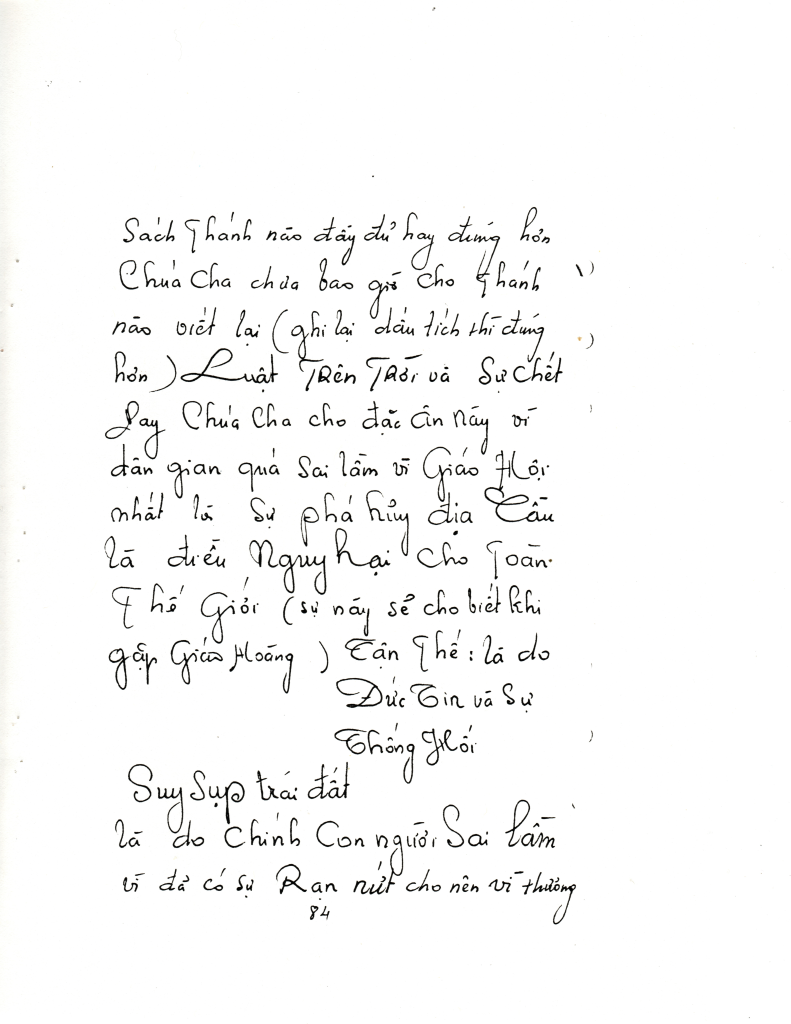 Sách Thánh nào đầy đủ hay đúng hơn
Chúa Cha chưa bao giờ cho Thánh
nào viết lại (ghi lại dấu tích thì đúng
hơn) Luật Trên Trời và Sự Chết
Nay Chúa Cha cho đặc ân này vì
dân gian quá Sai lầm vì Giáo Hội
nhất là Sự phá hủy địa Cầu
là điều Nguy hại cho Toàn
Thế Giới (sự này sẽ cho biết khi
gặp Giáo Hoàng) Tận Thế: là do
Đức Tin và Sự
Thống Hối
Suy Sụp trái đất
là do Chính Con người Sai lầm
vì đã có sự Rạn nứt cho nên vì thương
84